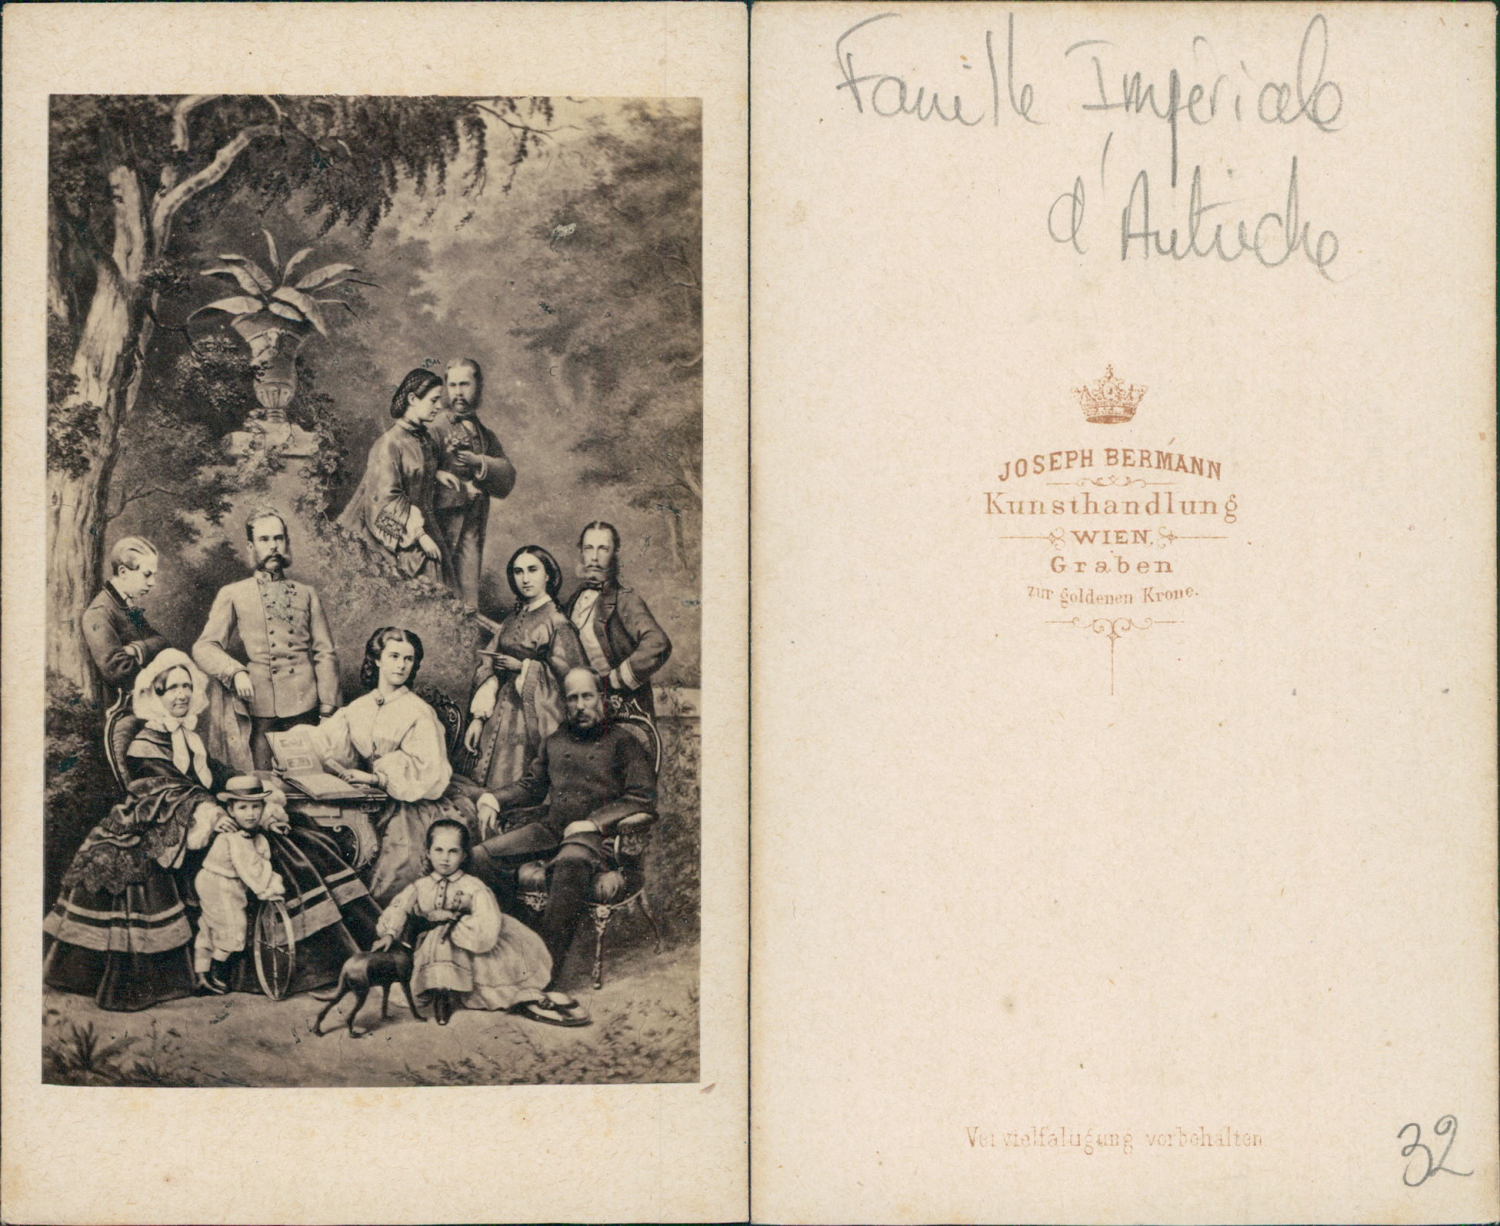 Famille Impériale
d'Autriche
JOSEPH BERMANN
Kunsthandlung
WIEN,
Graben
zur goldenen Krone.
Vervielfälügung vorbehalten
32